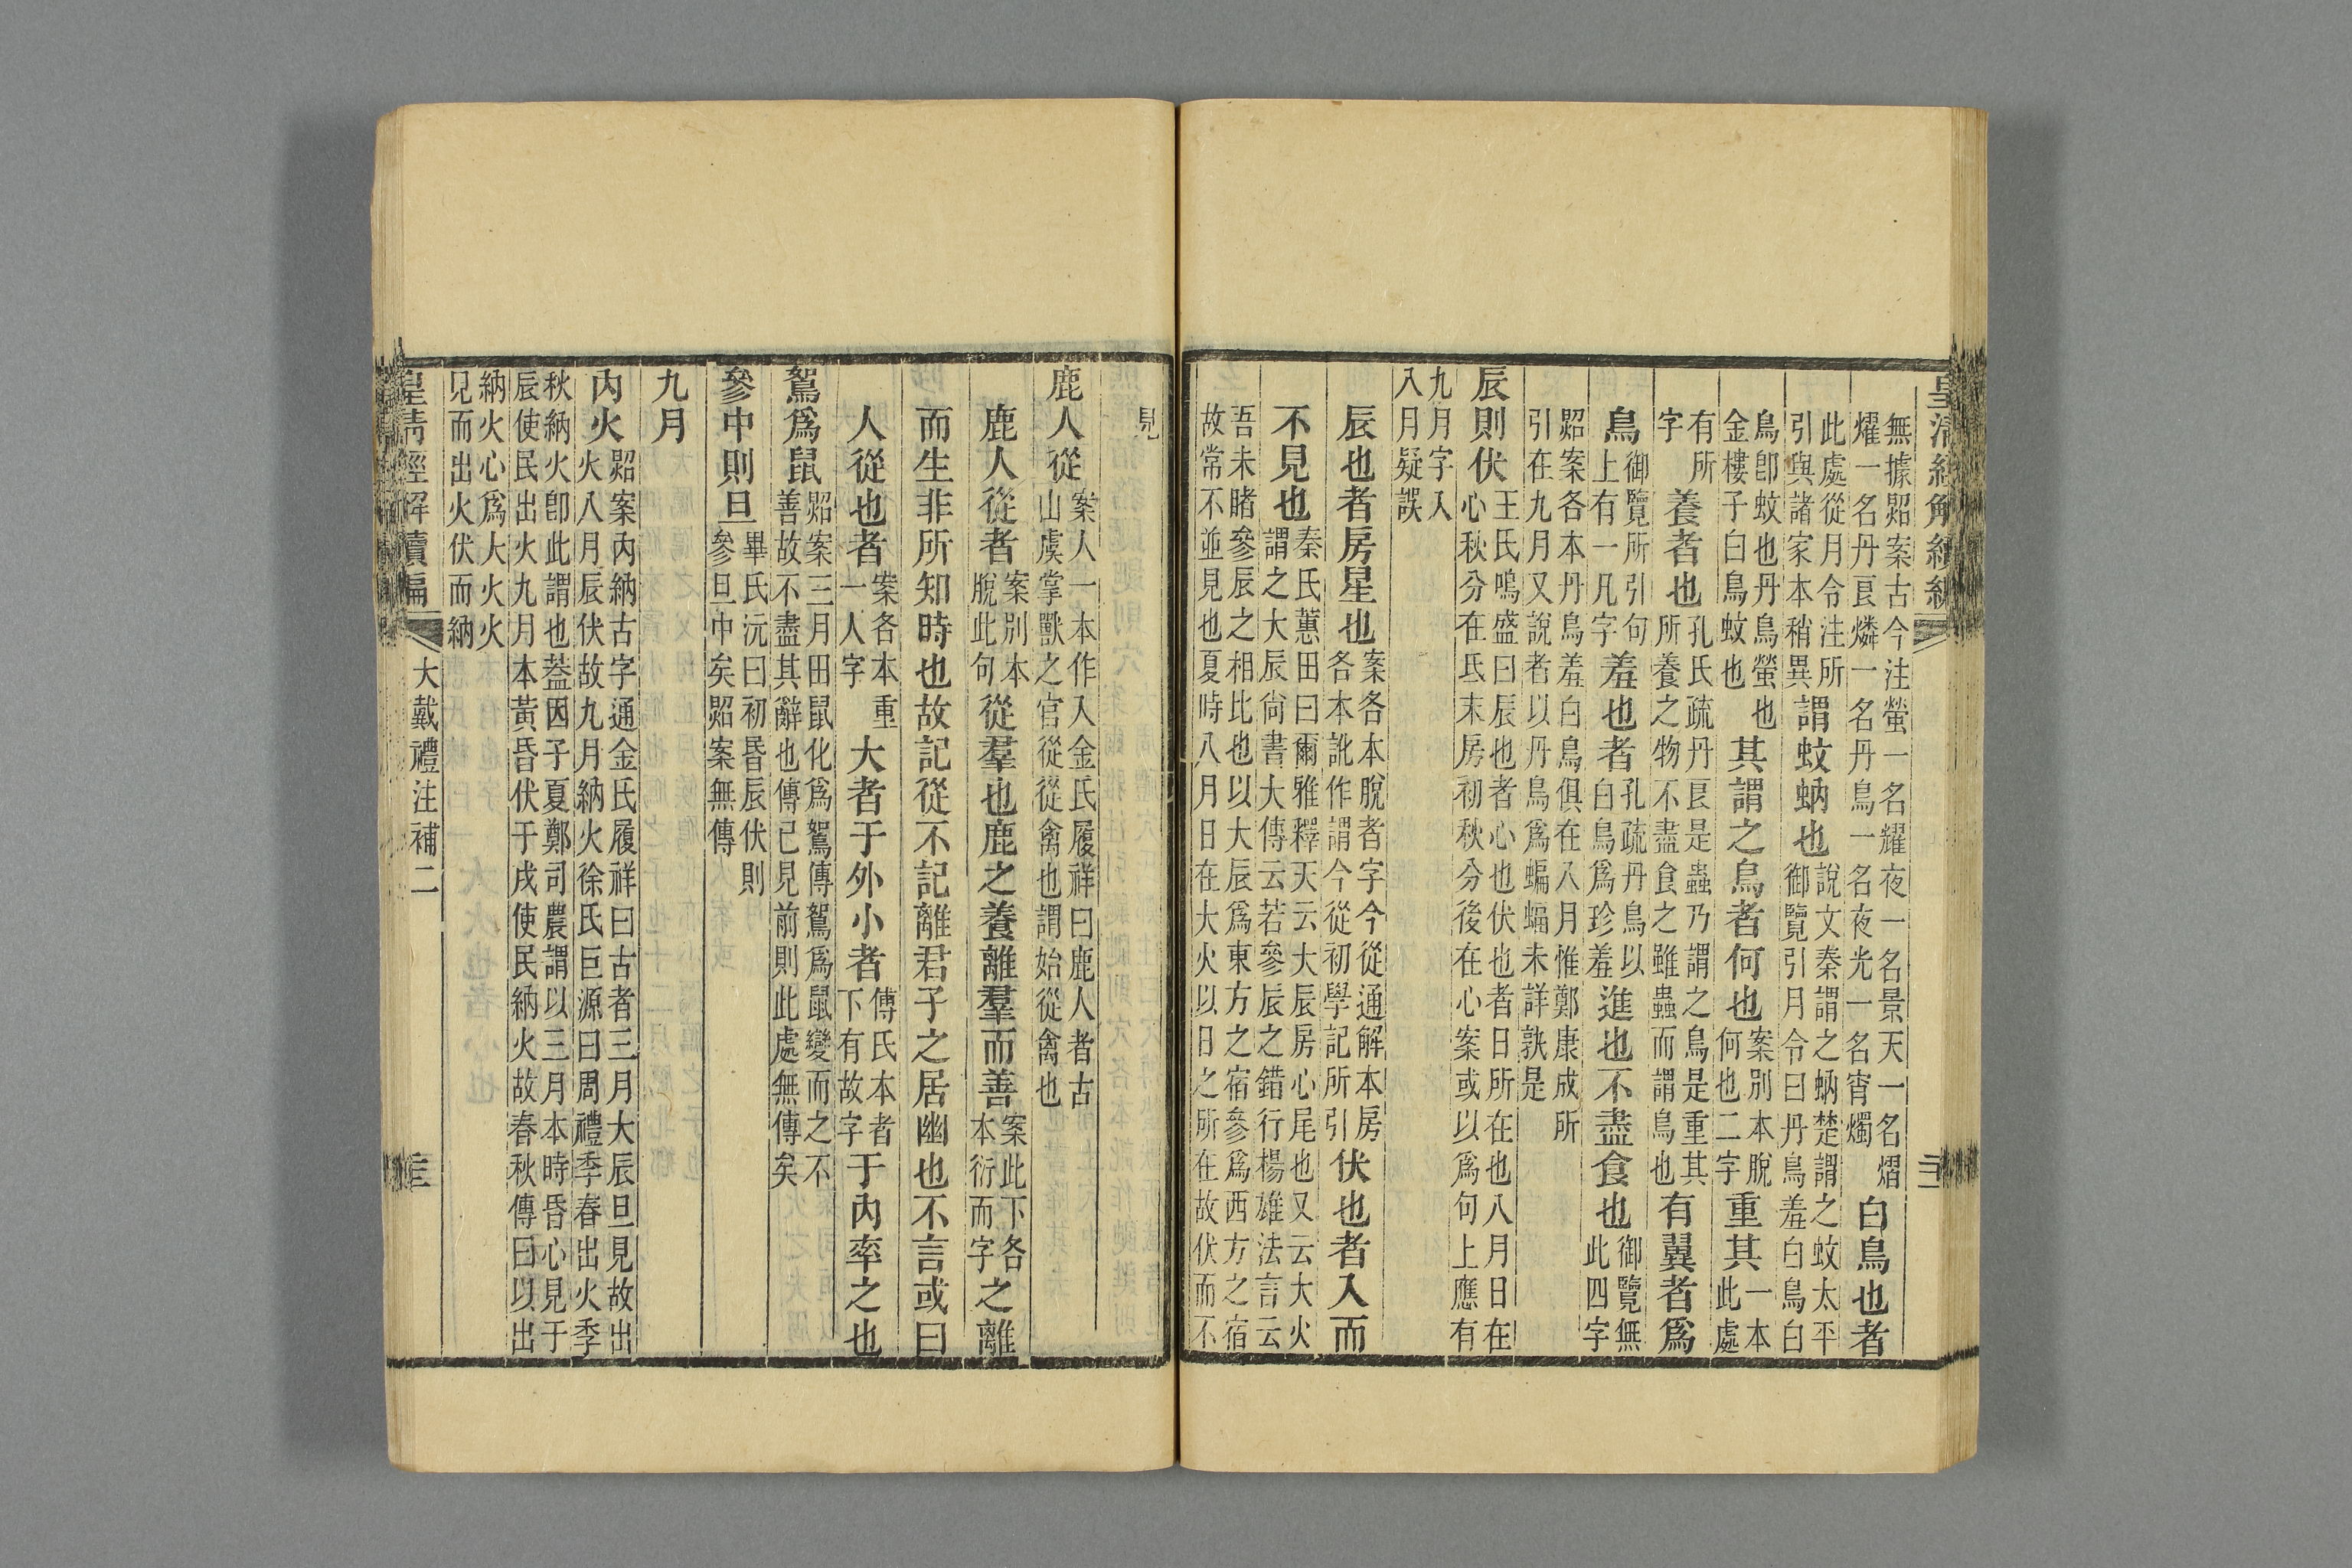 皇清經解續編
無據照案古今注螢一名耀夜一名景天一名熠
燿一名丹良燐一名丹鳥一名夜光一名宵燭
白鳥也者
此處從月令注所
引與諸家本稍異
謂蚊蚋也
說文秦謂之蚋楚謂之蚊太平
御覽引月令曰丹鳥羞白鳥白
鳥卽蚊也丹鳥螢也
金樓子白鳥蚊也
其謂之鳥者何也
案別本脫
何也二字
重其
一本
此處
有所
字
養者也
孔氏疏丹良是蟲乃謂之鳥是重其
所養之物不盡食之雖蟲而謂鳥也
有翼者爲
鳥
御覽所引句
上有一凡字
羞也者
孔疏丹鳥以
白鳥爲珍羞
進也不盡食也
御覽無
此四字
照案各本丹鳥羞白鳥俱在八月惟鄭康成所
引在九月又說者以丹鳥爲蝙蝠未詳孰是
辰則伏
王氏鳴盛曰辰也者心也伏也者日所在也八月日在
心秋分在氐末房初秋分後在心案或以爲句上應有
九月字入
八月疑誤
辰也者房星也
案各本脫者字今從通解本房
各本訛作謂今從初學記所引
伏也者入而
不見也
秦氏蕙田曰爾雅釋天云大辰房心尾也又云大火
謂之大辰尙書大傳云若參辰之錯行楊雄法言云
吾未睹參辰之相比也以大辰爲東方之宿參爲西方之宿
故常不並見也夏時八月日在大火以日之所在故伏而不
見
鹿人從
案人一本作入金氏履祥曰鹿人者古
山虞掌獸之官從從禽也謂始從禽也
鹿人從者
案別本
脫此句
從羣也鹿之養離羣而善
案此下各
本衍而字
之離
而生非所知時也故記從不記離君子之居幽也不言或曰
人從也者
案各本重
一人字
大者于外小者
傅氏本者
下有故字
于內率之也
鴽爲鼠
照案三月田鼠化爲鴽傳鴽爲鼠變而之不
善故不盡其辭也傳已見前則此處無傳矣
參中則旦
畢氏沅曰初昏辰伏則
參旦中矣照案無傳
九月
內火
照案內納古字通金氏履祥曰古者三月大辰旦見故出
火八月辰伏故九月納火徐氏巨源曰周禮季春出火季
秋納火卽此謂也葢因子夏鄭司農謂以三月本時昏心見于
辰使民出火九月本黃昏伏于戌使民納火故春秋傳曰以出
納火心爲大火火
見而出火伏而納
皇淸經解續編
大戴禮注補二